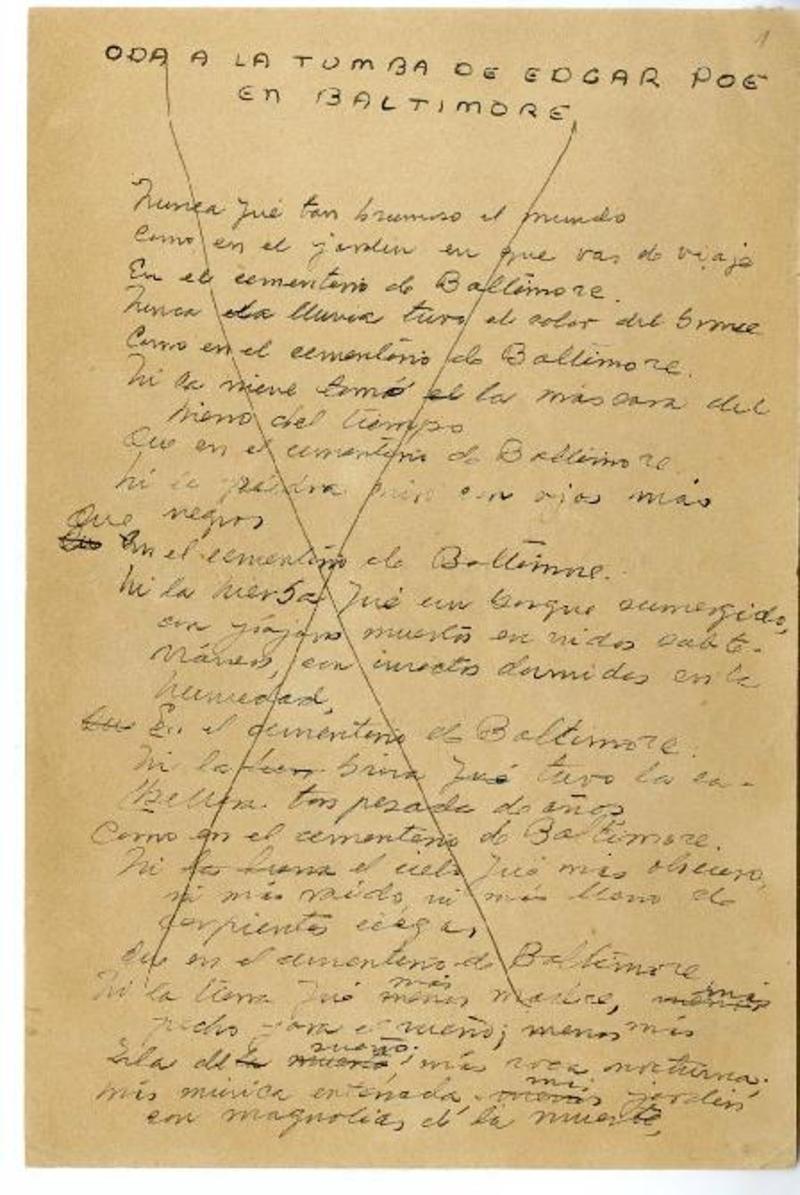 1
ODA A LA TUMBA DE EDGAR POE
EN BALTIMORE
Nunca fué tan brumoso el mundo
Como en el jardin en que vas de viaje
En el cementerio de Baltimore.
Nunca la lluvia tuvo el color del bronce
Como en el cementerio de Baltimore.
Ni la nieve tomó el la máscara del
hieno del tiempo
Que en el cementerio de Baltimore
Ni la piedra miró con ojos más
negros
Que
En el cementerio de Baltimore.
Ni la hierba fué un bosque sumergido,
con pájaros muertos en nidos subte-
rráneos, con insectos dormidos en la
humedad,
En el cementerio de Baltimore.
Ni la brisa fué tuvo la ca-
bellera tan pesada de años
Como en el cementerio de Baltimore.
Ni la luna el cielo fué más obscuro,
ni más raído, ni más lleno de
serpientes ciegas
Que en el cementerio de Baltimore
más más
Ni la tierra fué menos madre, menos
pecho para el sueño; menos más
sueño
sala de la muerte; más roca nocturna;
más
más música enterrada, menos jardín
con magnolias de la muerte,